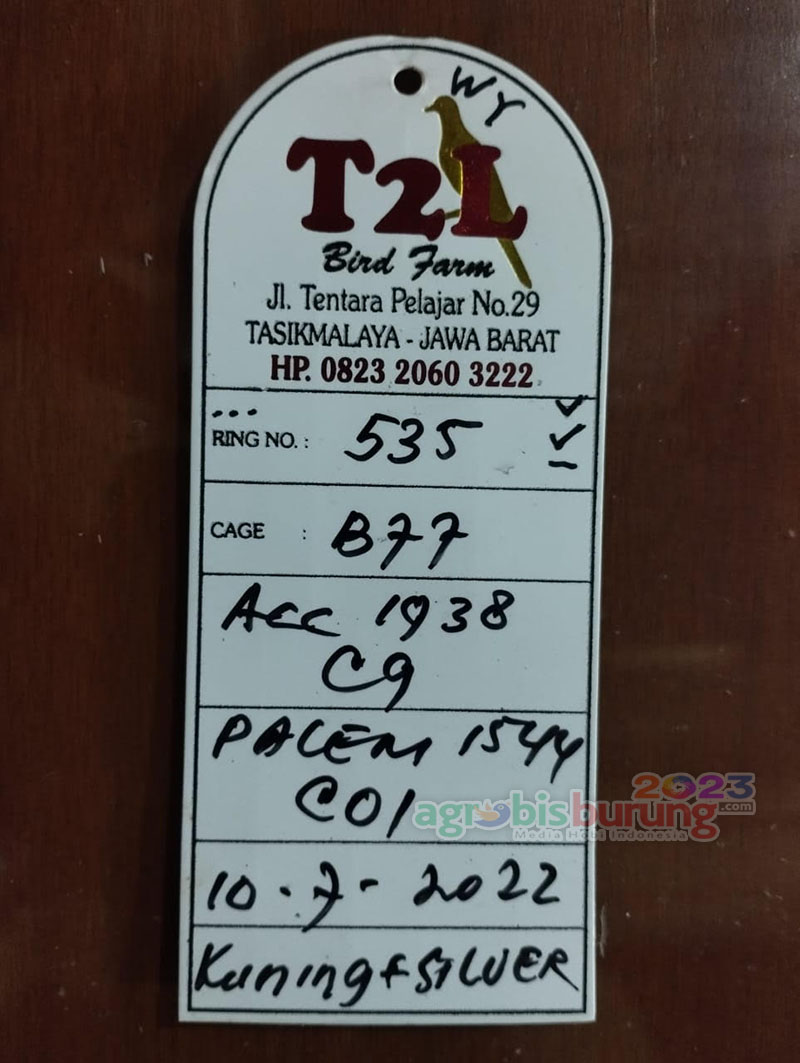 WY
T2L
Bird Farm
Jl. Tentara Pelajar No.29
TASIKMALAYA - JAWA BARAT
HP. 0823 2060 3222
RING NO. : 535
CAGE : B77
Acc 1938
C9
PALEM 1544
C01
2023
agrobisburung.com
Media Hobi Indonesia
10 . 7 - 2022
Kuning + SILVER